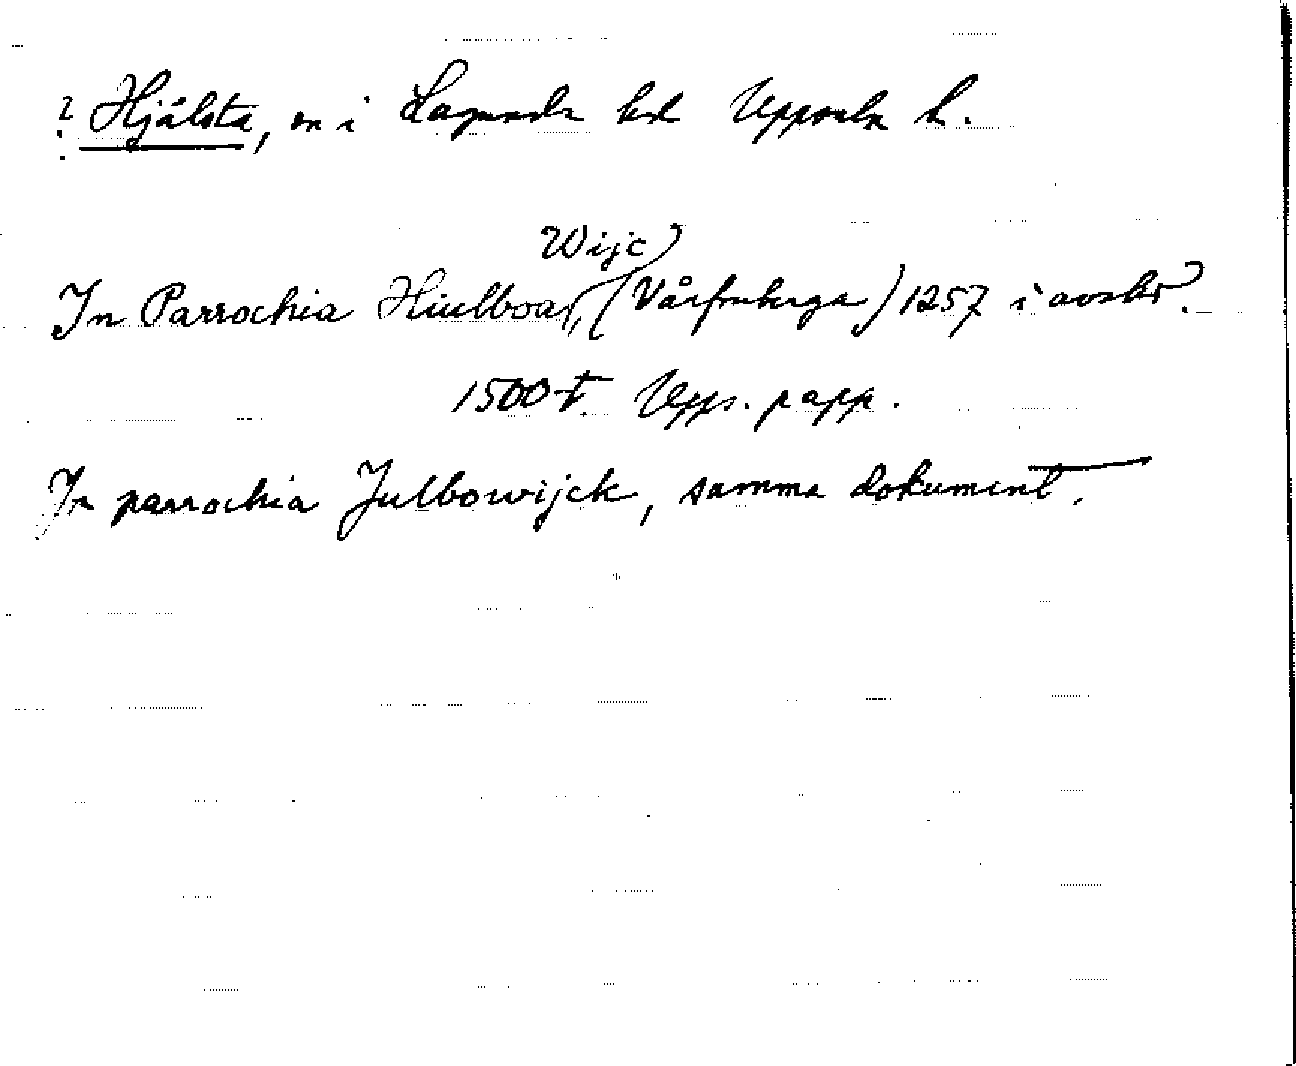 ? Hjälsta, sn i Lagunda hd Uppsala l.
Wijc
In Parrochia Hiulboa, (Vårfruberga) 1257 i avskr.
1500-t. Upps. papp.
In parrochia Julbowijck, samma dokument.